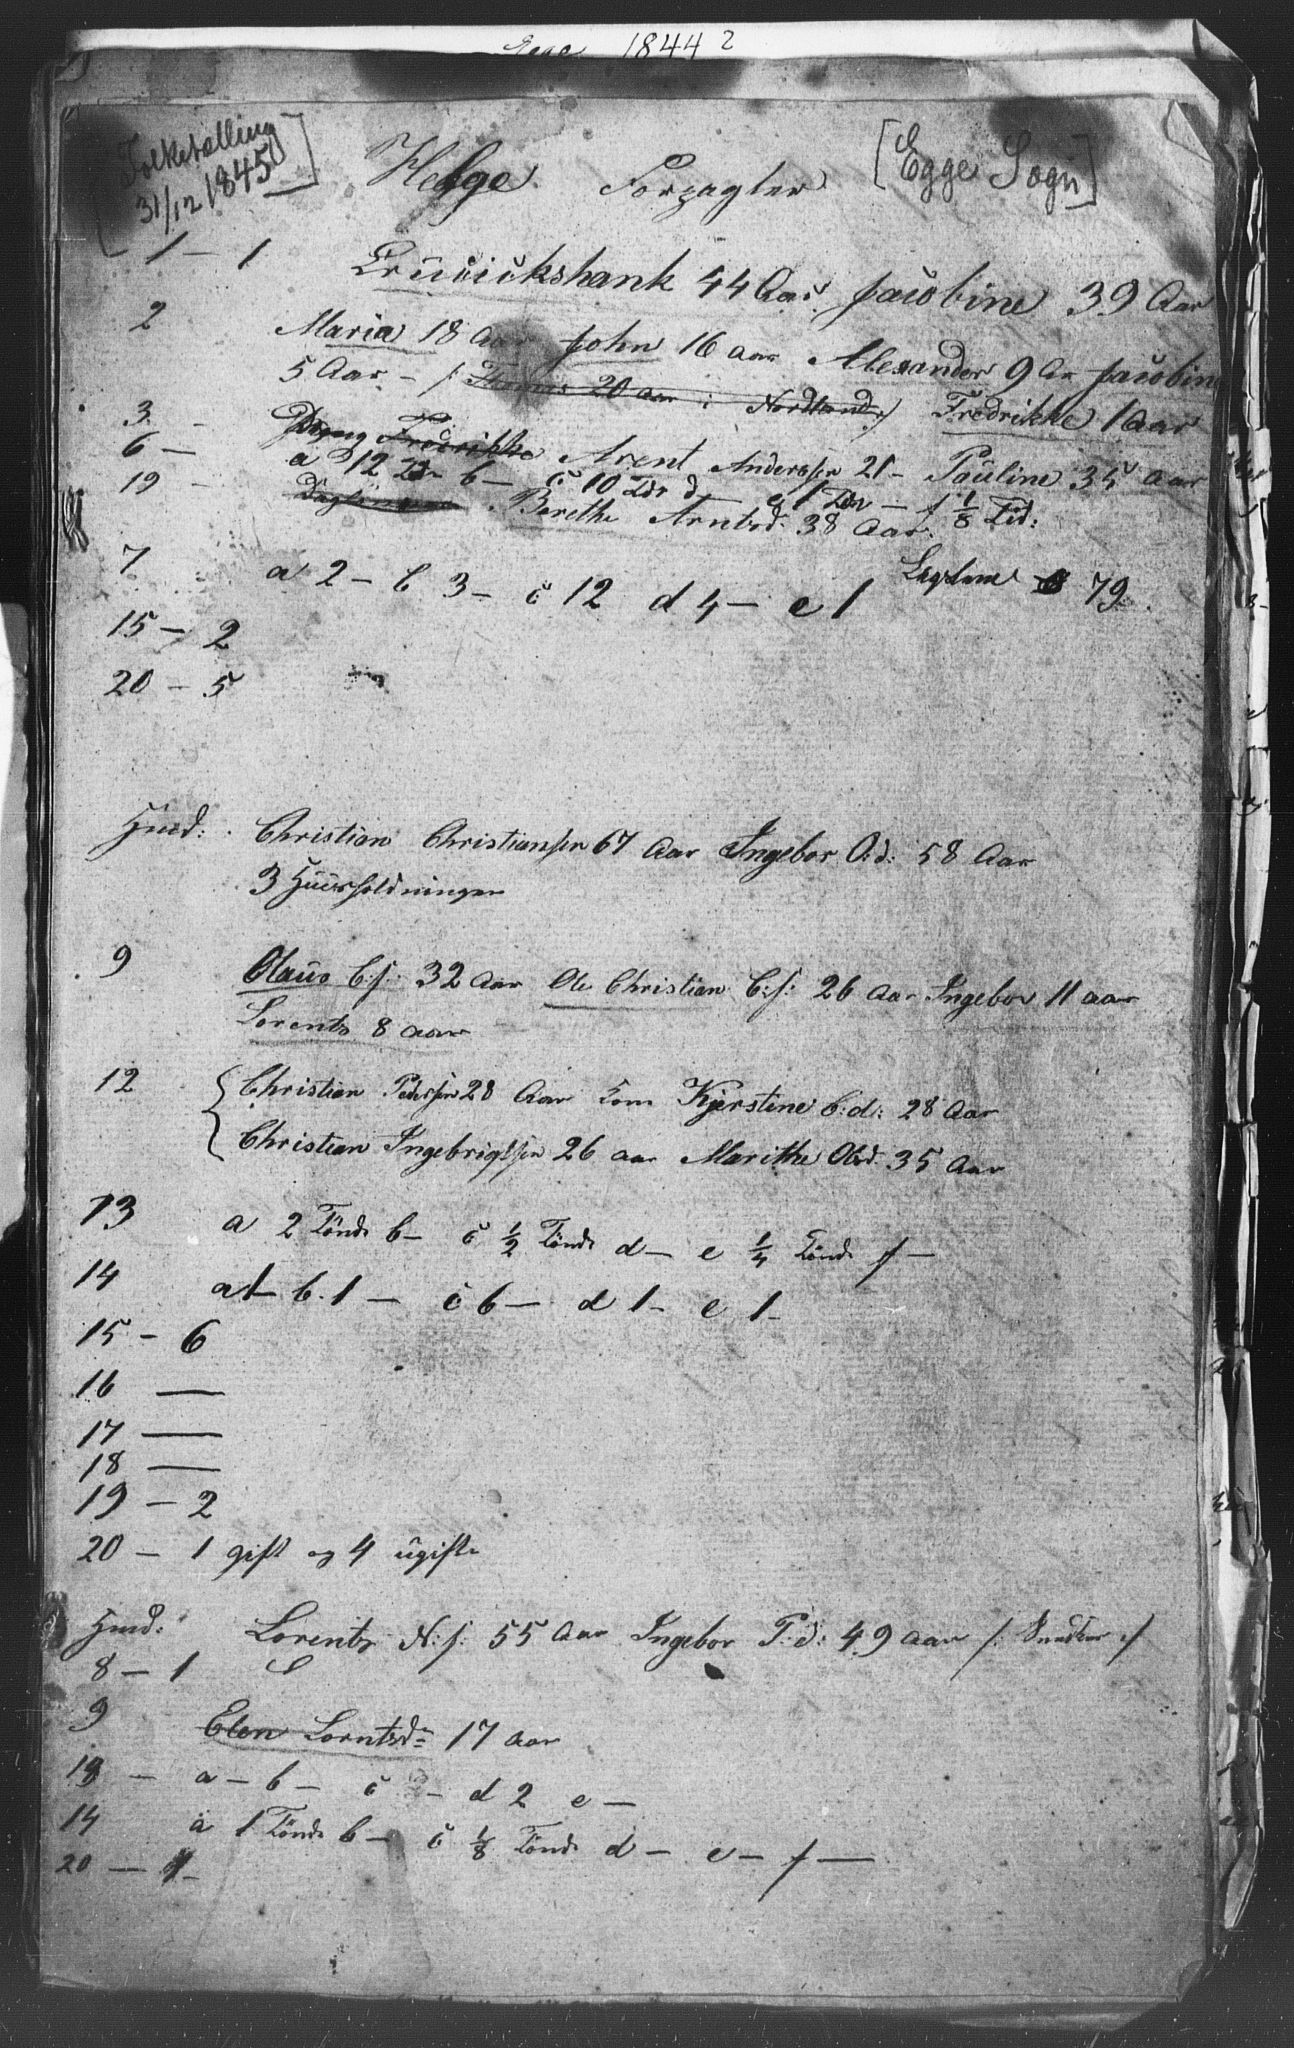 Egge 1844 2
[Folketælling
31/12 1845]
Helge. Forpagter [Egge Sogn]
1 - 1 Cruickshank 44 Aar. Jacobine 39 Aar
2 Maria 18 Aar John 16 aar Alexander 9 Ar Jacobine
5 Aar - /: Thomas 20 aar : Nordland :/ Fredrikke 1 Aar
3 - Fredrikke Arent Andersen 21 - Pauline 35 Aar
6 - a 12 Tdr b - c 10 Tdr d - e 1 Tdr - f 1/8 Td:
19 - Berethe Arntsd. 38 Aar.
7 a 2 - b 3 - c 12 d 4 - e 1 79.
15 - 2
20 - 5
Hmd: Christian Christiansen 67 Aar Ingebor O.d: 58 Aar
3 Huusholdninger
9 Olaus C:s: 32 Aar Ole Christian C:s: 26 Aar Ingebor 11 aar
Lorents 8 aar
12 Christian Pedersen 28 Aar Kone Kjerstine C:d: 28 Aar
Christian Ingebrigtsen 26 aar Marithe Olsd. 35 Aar
13 a 2 Tönde b - c 1/2 Tönde d - e 1/4 Tönde f -
14 a 1 - b. 1 - c 6 - d 1 - e 1 -
15 - 6
16 —
17 —
18 —
19 - 2
20 - 1 gift og 4 ugifte
Hmd: Lorents N:s: 55 Aar Ingebor P:d: 49 aar /: Snedker :/
8 - 1
9 Elen Lorntsd= 17 aar
13 - a - b - c - d 2 e -
14 a 1 Tönde b - c 1/8 Tönde d - e - f —
20 — 1 -